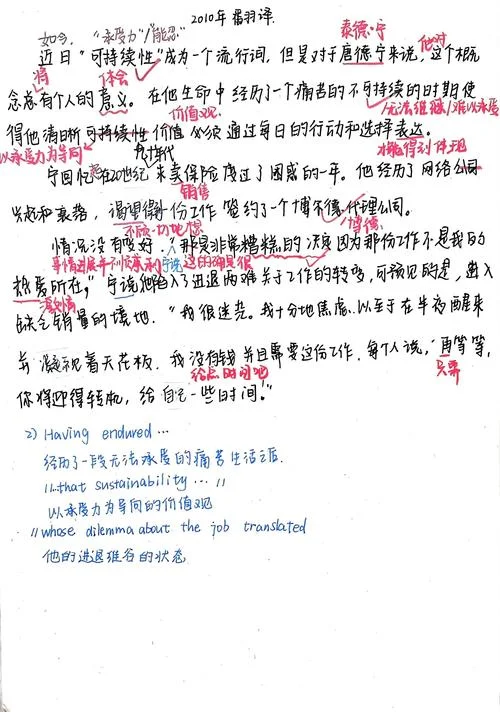 2010年翻译.
如今, "承受力"/"能忍"
泰德·宁
近日"可持续性"成为一个流行词, 但是对于唐德宁来说, 这个概
他对
将 体会
念总有个人的意义. 在他生命中经历了一个痛苦的不可持续的时期使
价值观. 无法继继/难以承受
得他清晰可持续性价值必须通过每日的行动和选择表达.
以承受力为导向 九十年代 才能得到体现
宁回忆在20世纪末卖保险度过了困惑的一年. 他经历了网络公司
销售
兴起和衰落, 渴望得到份工作签约了一个博不德代理公司.
不顾一切地想 博德
情况没有变好. "那是非常糟糕的决定因为那份工作不是我的
事情进展并不顺利 宁说 这的确是很
热爱所在," 宁说他陷入了进退两难关于工作的转变, 可预见的是, 进入
缺乏销量的境地. "我很迷茫. 我十分地焦虑. 以至于在半夜醒来
并凝视着天花板. 我没有钱并且需要这份工作. 每个人说, '再等等,
给点时间吧 只要
你将迎得转机, 给自己一些时间.'"
2) Having endured …
经历了一段无法承受的痛苦生活之后.
"…that sustainability … "
以承受力为导向的价值观
"whose dilemma about the job translated
他的进退维谷的状态